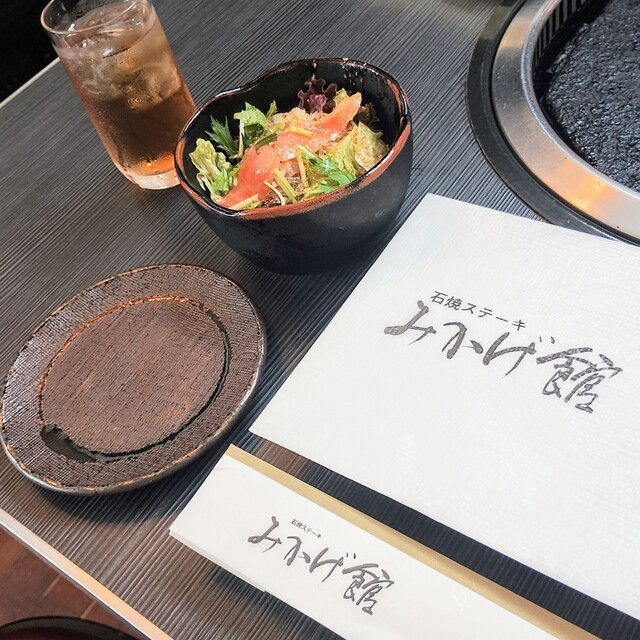 石焼ステーキ
みかげ館
石焼ステーキ
みかげ館